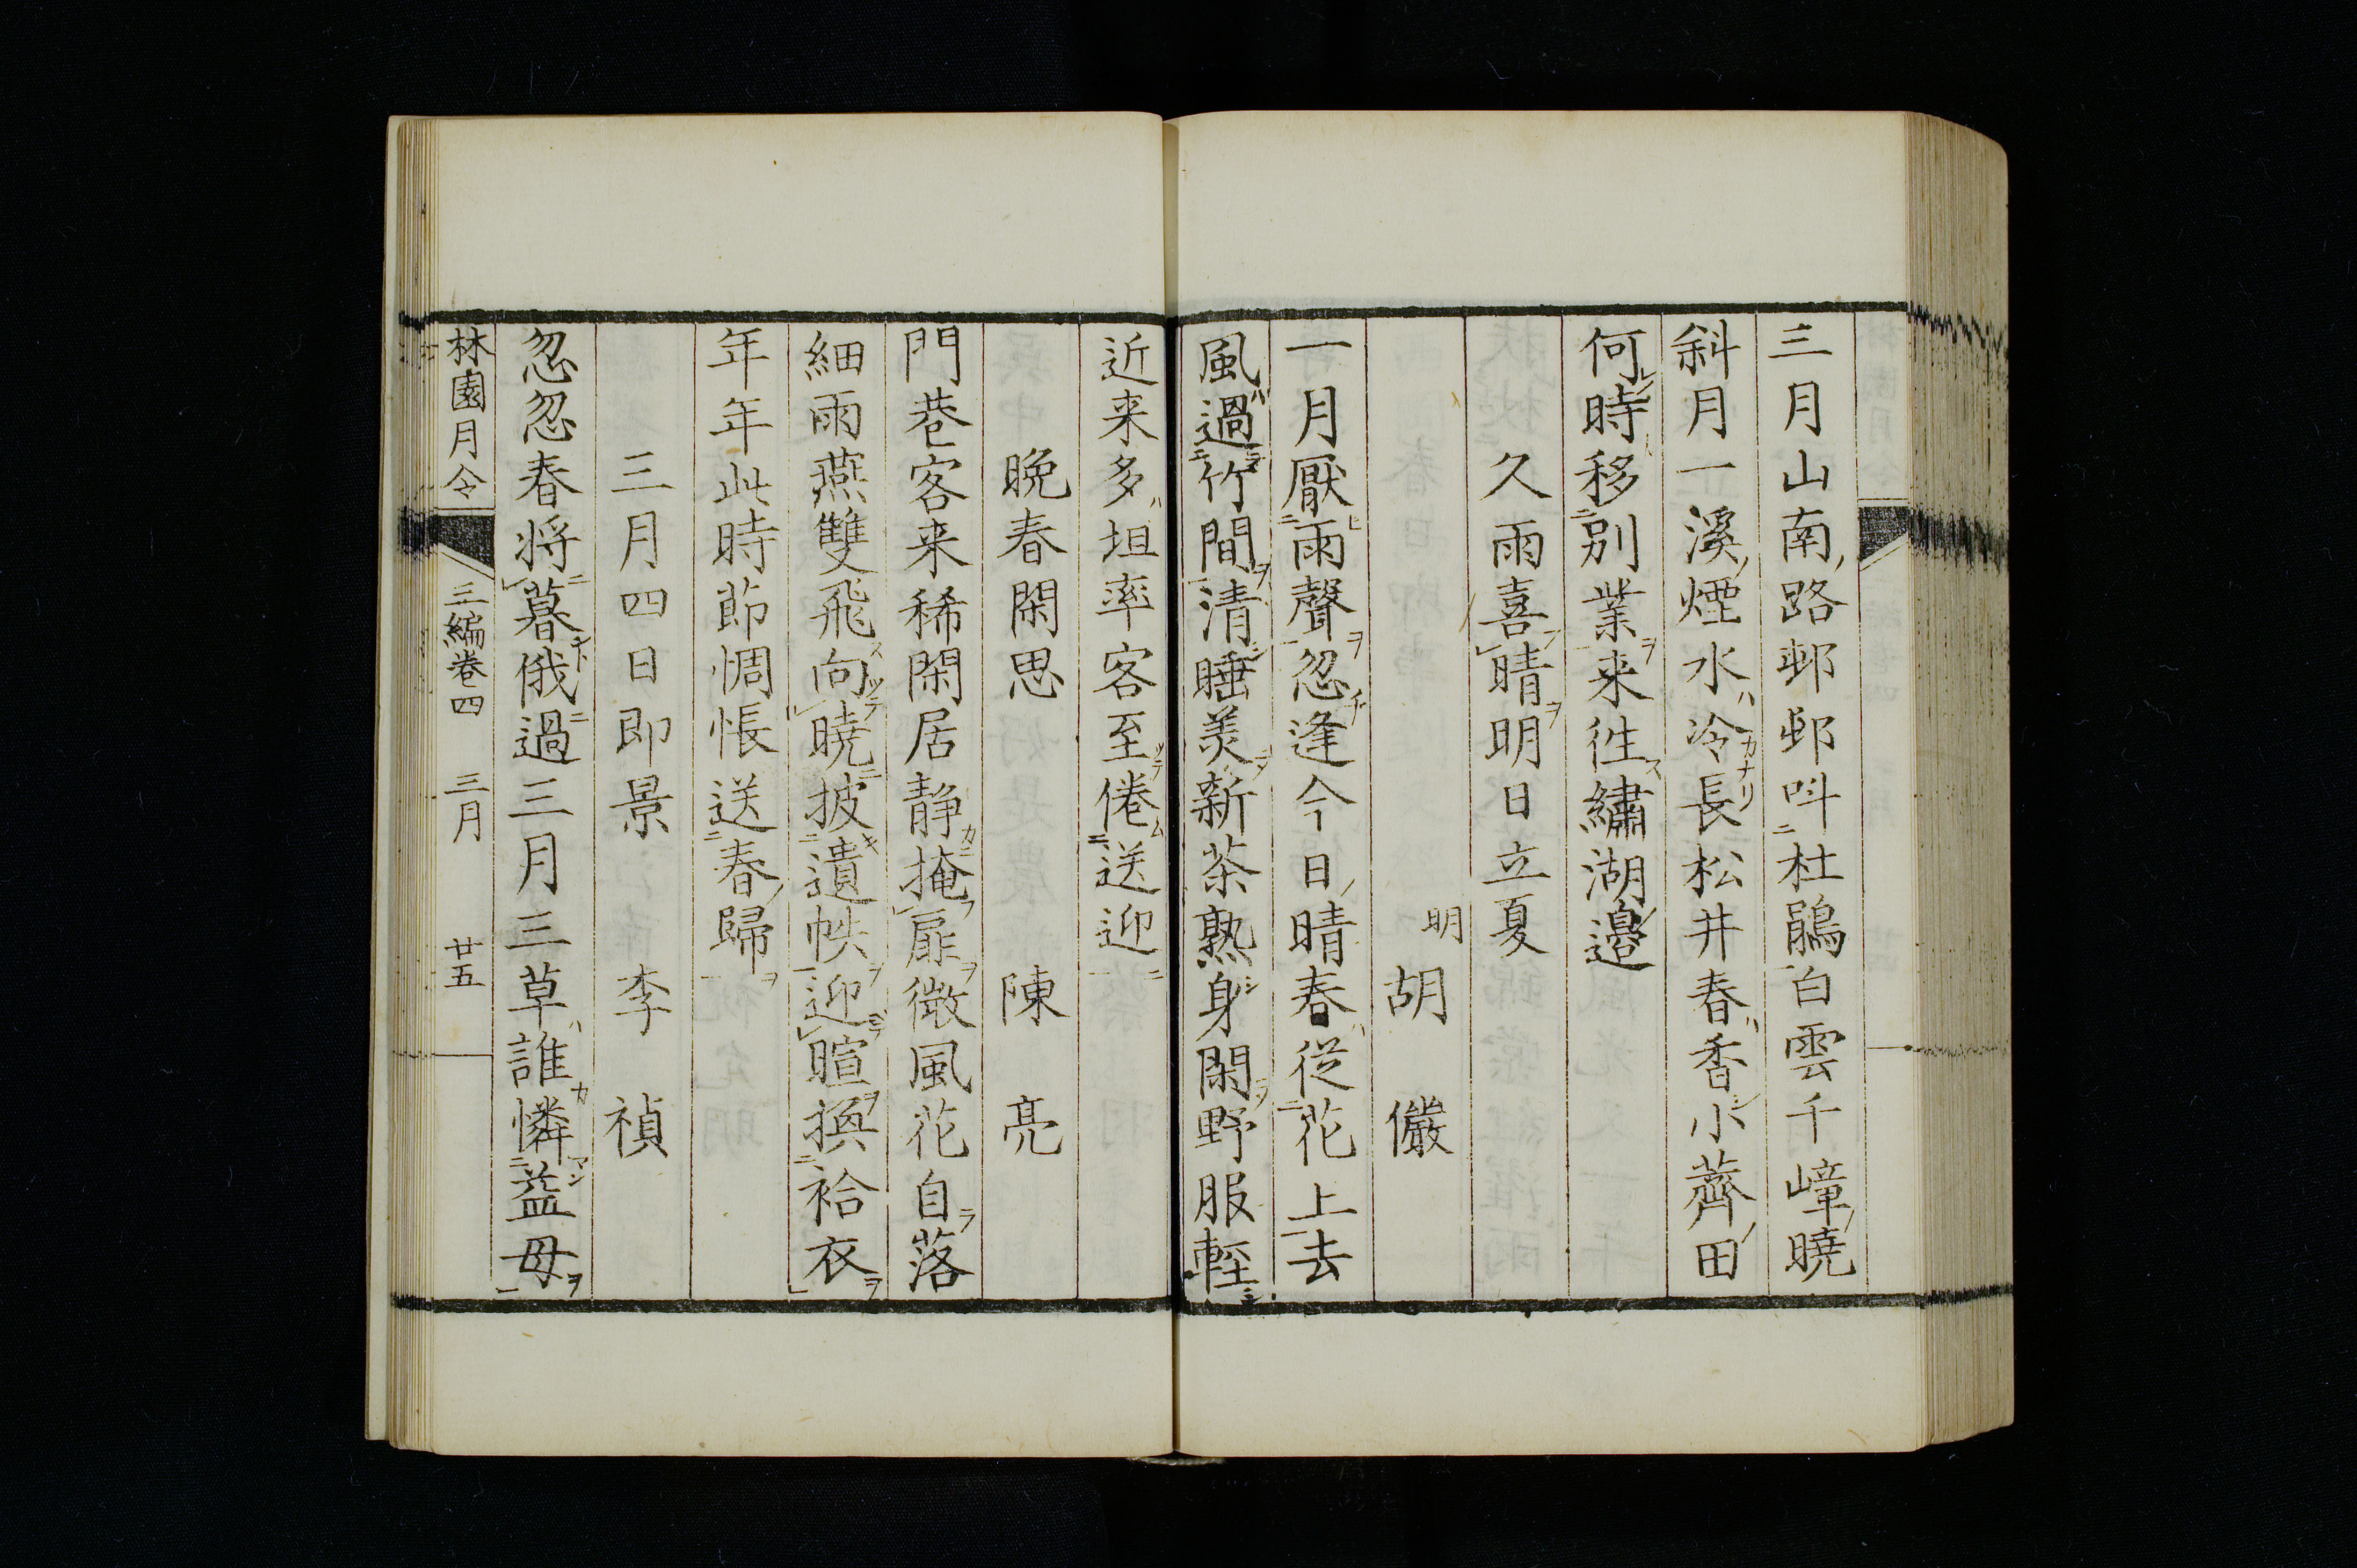 三月山南路邨邨呌杜鵑白雲千嶂曉
斜月一溪煙水冷長松井春香小薺田
何時移別業来徃繡湖邉
久雨喜晴明日立夏
明胡儼
一月厭雨聲忽逢今日晴春從花上去
風過竹間清睡美新茶熟身閑野服輕
近来多坦率客至倦送迎
晩春閑思 陳亮
門巷客来稀閑居静掩扉微風花自落
細雨燕雙飛向曉披遺帙迎暄換袷衣
年年此時節惆悵送春歸
三月四日即景 李禎
忽忽春将暮俄過三月三草誰憐益母
林園月令 三編巻四 三月 廿五